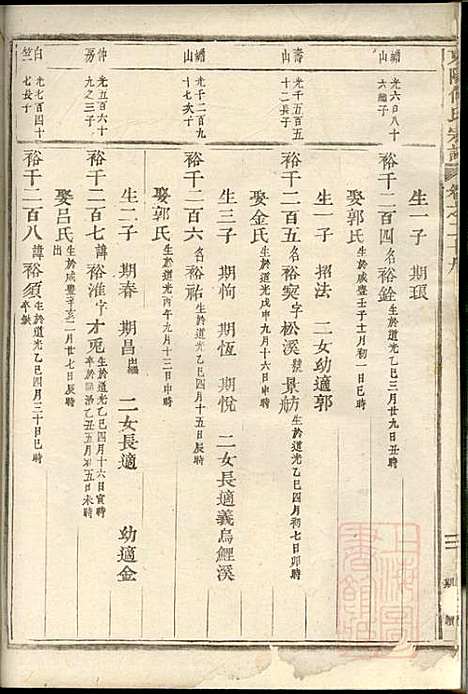 生一子 期琅
繡山 光六百八十六繼子
裕千二百四 名裕銓 生於道光乙巳三月廿九日丑時
娶郭氏 生於咸豐壬子十月初一日巳時
生一子 招法 二女幼適郭
壽山 光千五百五十二長子
裕千二百五 名裕寀字松溪號景舫 生於道光乙巳四月初七日卯時
娶金氏 生於道光戊申九月十六日申時
生三子 期恂 期恆 期悅 二女長適義烏鯉溪
繡山 光千二百九十七次子
裕千二百六 名裕祐 生於道光乙巳四月十五日辰時
娶郭氏 生於道光丙午九月十三日申時
生二子 期春 期昌出繼 二女長適 幼適金
仲房 光五百六十九之三子
裕千二百七 諱裕淮字才兎 生於道光乙巳四月十六日寅時 卒於同治乙丑五月未時
娶呂氏 生於咸豐辛亥二月廿七日辰時 出
白竺 光七百四十七長子
裕千二百八 諱裕須 生於道光乙巳四月三十日巳時 卒缺